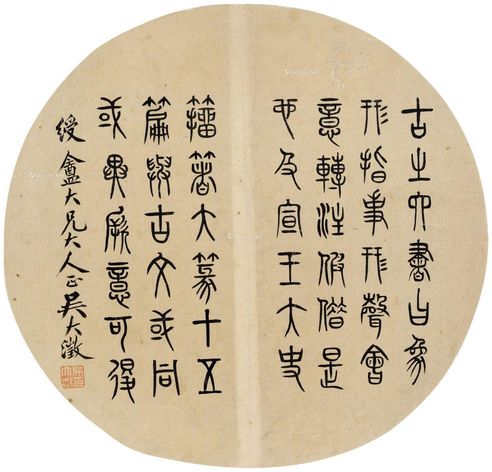 古之六書曰象
形指事形聲會
意轉注假借是
也及宣王大史
籀著大篆十五
篇與古文或同
或異厥意可得
綬盦大兄大人正吳大澂